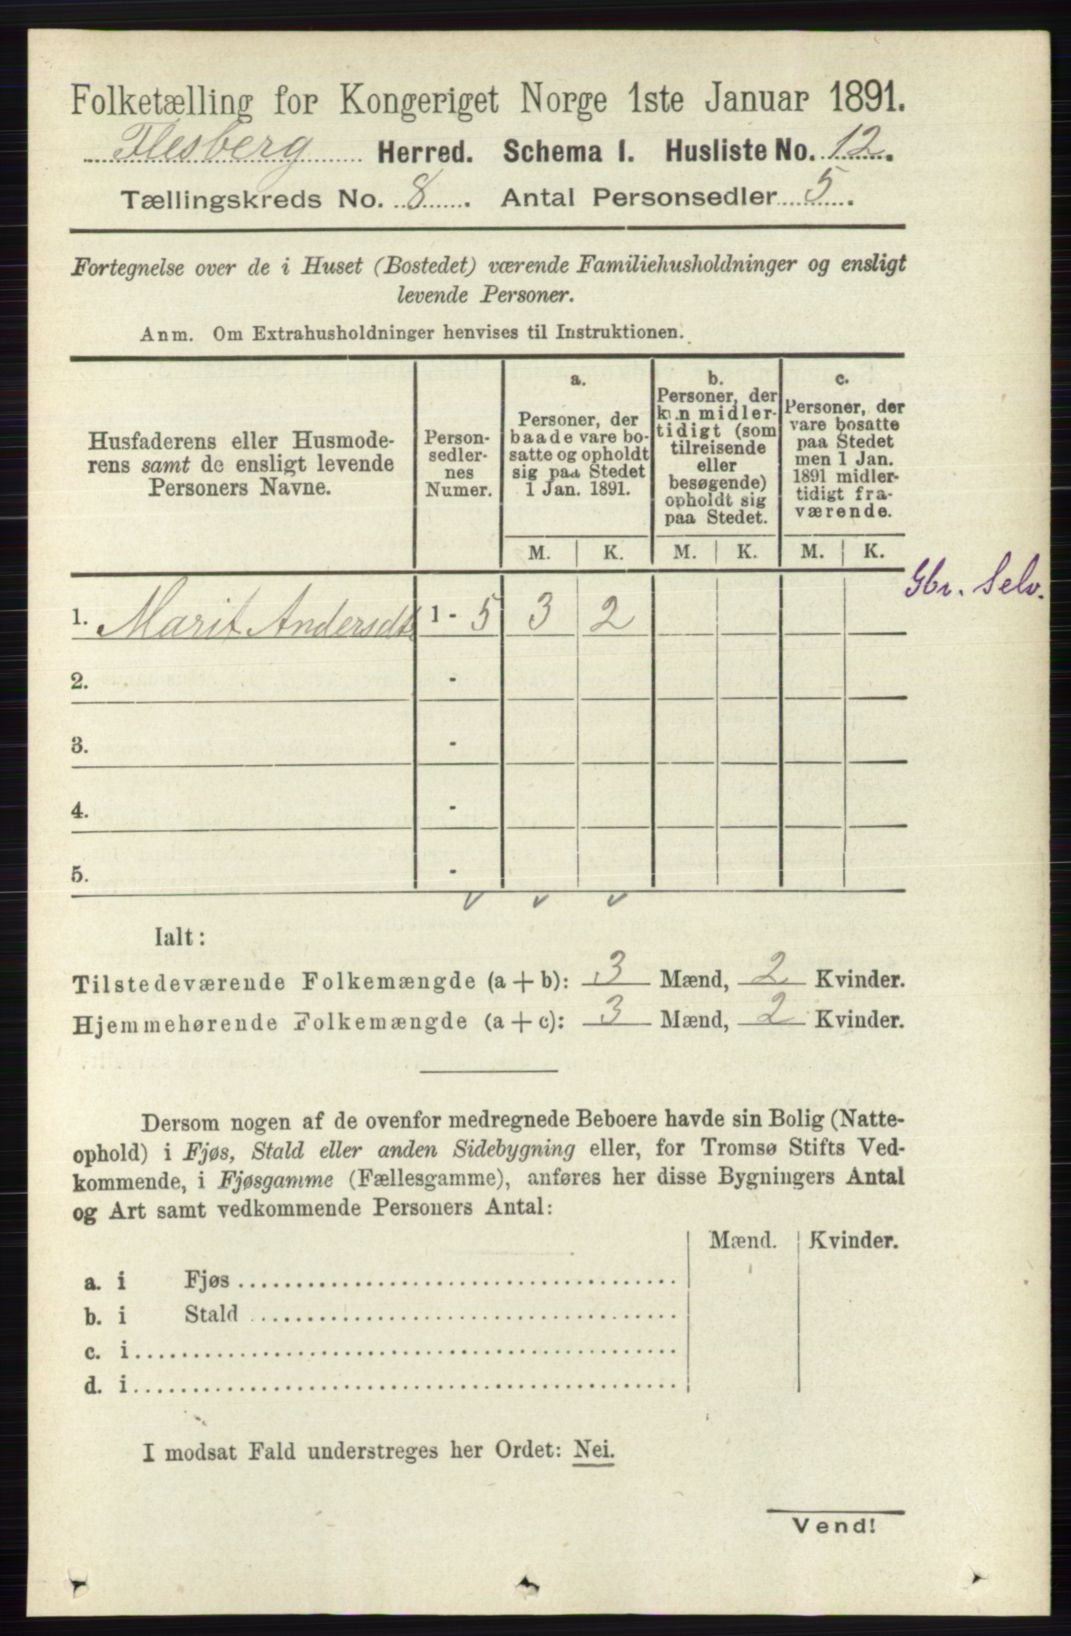 Folketælling for Kongeriget Norge 1ste Januar 1891.
Flesberg Herred. Schema I. Husliste No. 12.
Tællingskreds No. 8. Antal Personsedler 5.
Fortegnelse over de i Huset (Bostedet) værende Familiehusholdninger og ensligt
levende Personer.
Anm. Om Extrahusholdninger henvises til Instruktionen.
Husfaderens eller Husmode-
rens samt de ensligt levende
Personers Navne.
Person-
sedler-
nes
Numer.
a.
Personer, der
baade vare bo-
satte og opholdt
sig paa Stedet
1 Jan. 1891.
b.
Personer, der
kun midler-
tidigt (som
tilreisende
eller
besøgende)
opholdt sig
paa Stedet.
c.
Personer, der
vare bosatte
paa Stedet
men 1 Jan.
1891 midler-
tidigt fra-
værende.
M. K. M. K. M. K.
Gbr. Selv.
1. Marit Andersdt 1 - 5 3 2
2. -
3. -
4. -
5. -
Ialt:
Tilstedeværende Folkemængde (a + b): 3 Mænd, 2 Kvinder.
Hjemmehørende Folkemængde (a + c): 3 Mænd, 2 Kvinder.
Dersom nogen af de ovenfor medregnede Beboere havde sin Bolig (Natte-
ophold) i Fjøs, Stald eller anden Sidebygning eller, for Tromsø Stifts Ved-
kommende, i Fjøsgamme (Fællesgamme), anføres her disse Bygningers Antal
og Art samt vedkommende Personers Antal:
Mænd. Kvinder.
a. i Fjøs
b. i Stald
c. i
d. i
I modsat Fald understreges her Ordet: Nei.
Vend!